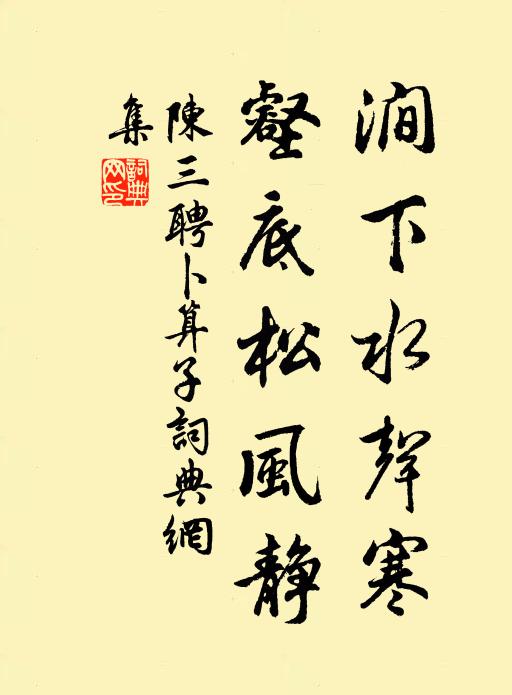 澗下水聲寒
壑底松風静
陳三聘卜算子詞典網
集
詞典網印